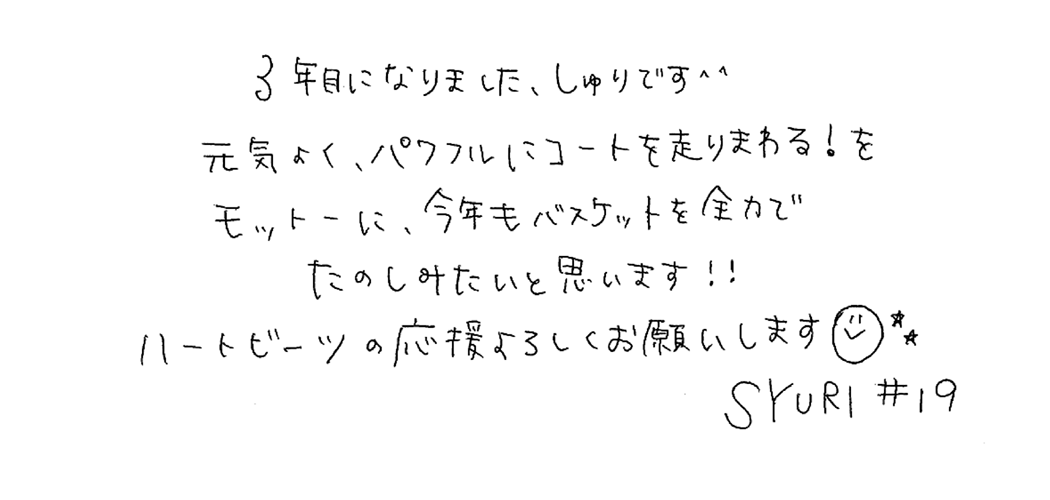 3年目になりました、しゅりです^^
元気よく、パワフルにコートを走りまわる!を
モットーに、今年もバスケットを全力で
たのしみたいと思います!!
ハートビーツの応援よろしくお願いします
SYURI #19